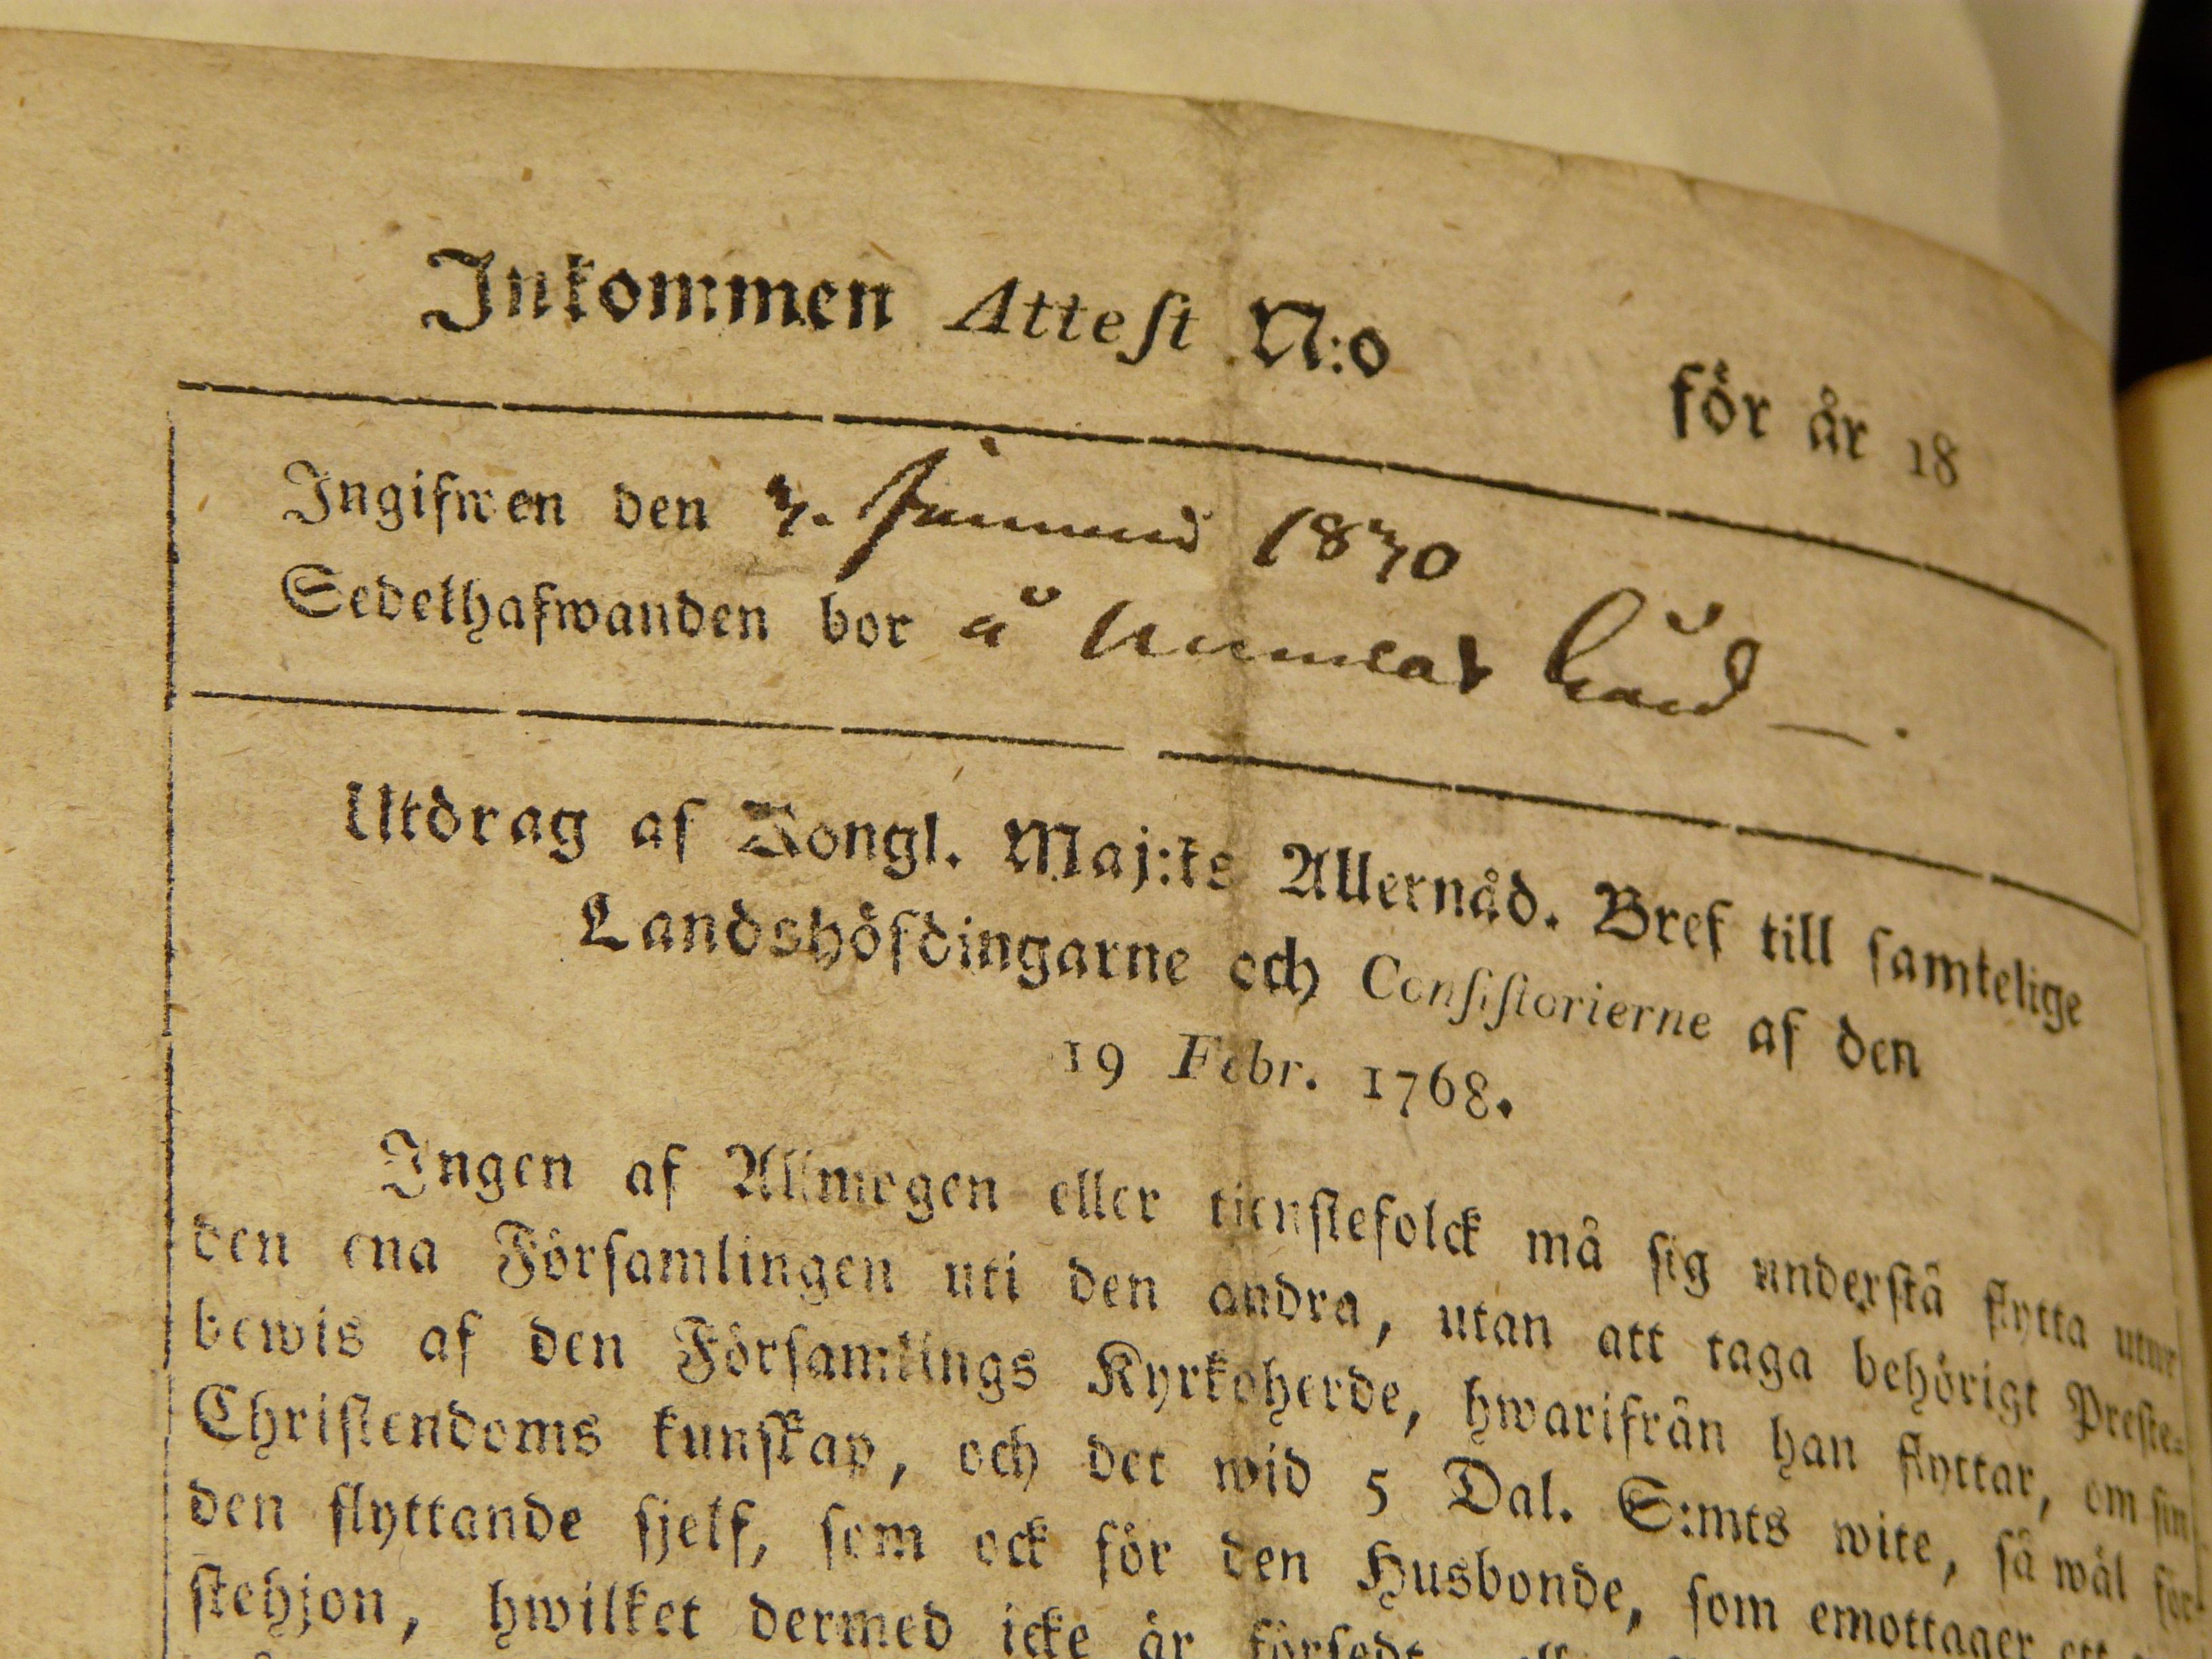 Inkommen Attest N:o för år 18
Ingifwen den 1830
Sedelhafwanden bor å
Utdrag af Kongl. Maj:ts Allernåd. Bref till samtelige
Landshöfdingarne och Consistorierne af den
19 Febr. 1768.
Ingen af Allmogen eller tienstefolck må sig understå flytta utur
den ena Församlingen uti den andra, utan att taga behörigt Preste-
bewis af den Församlings Kyrkoherde, hwarifrån han flyttar, om sin
Christendoms kunskap, och det wid 5 Dal. S:mts wite, så wäl för
den flyttande sjelf, som ock för den Husbonde, som emottager ett
stehjon, hwilket dermed icke är försedt